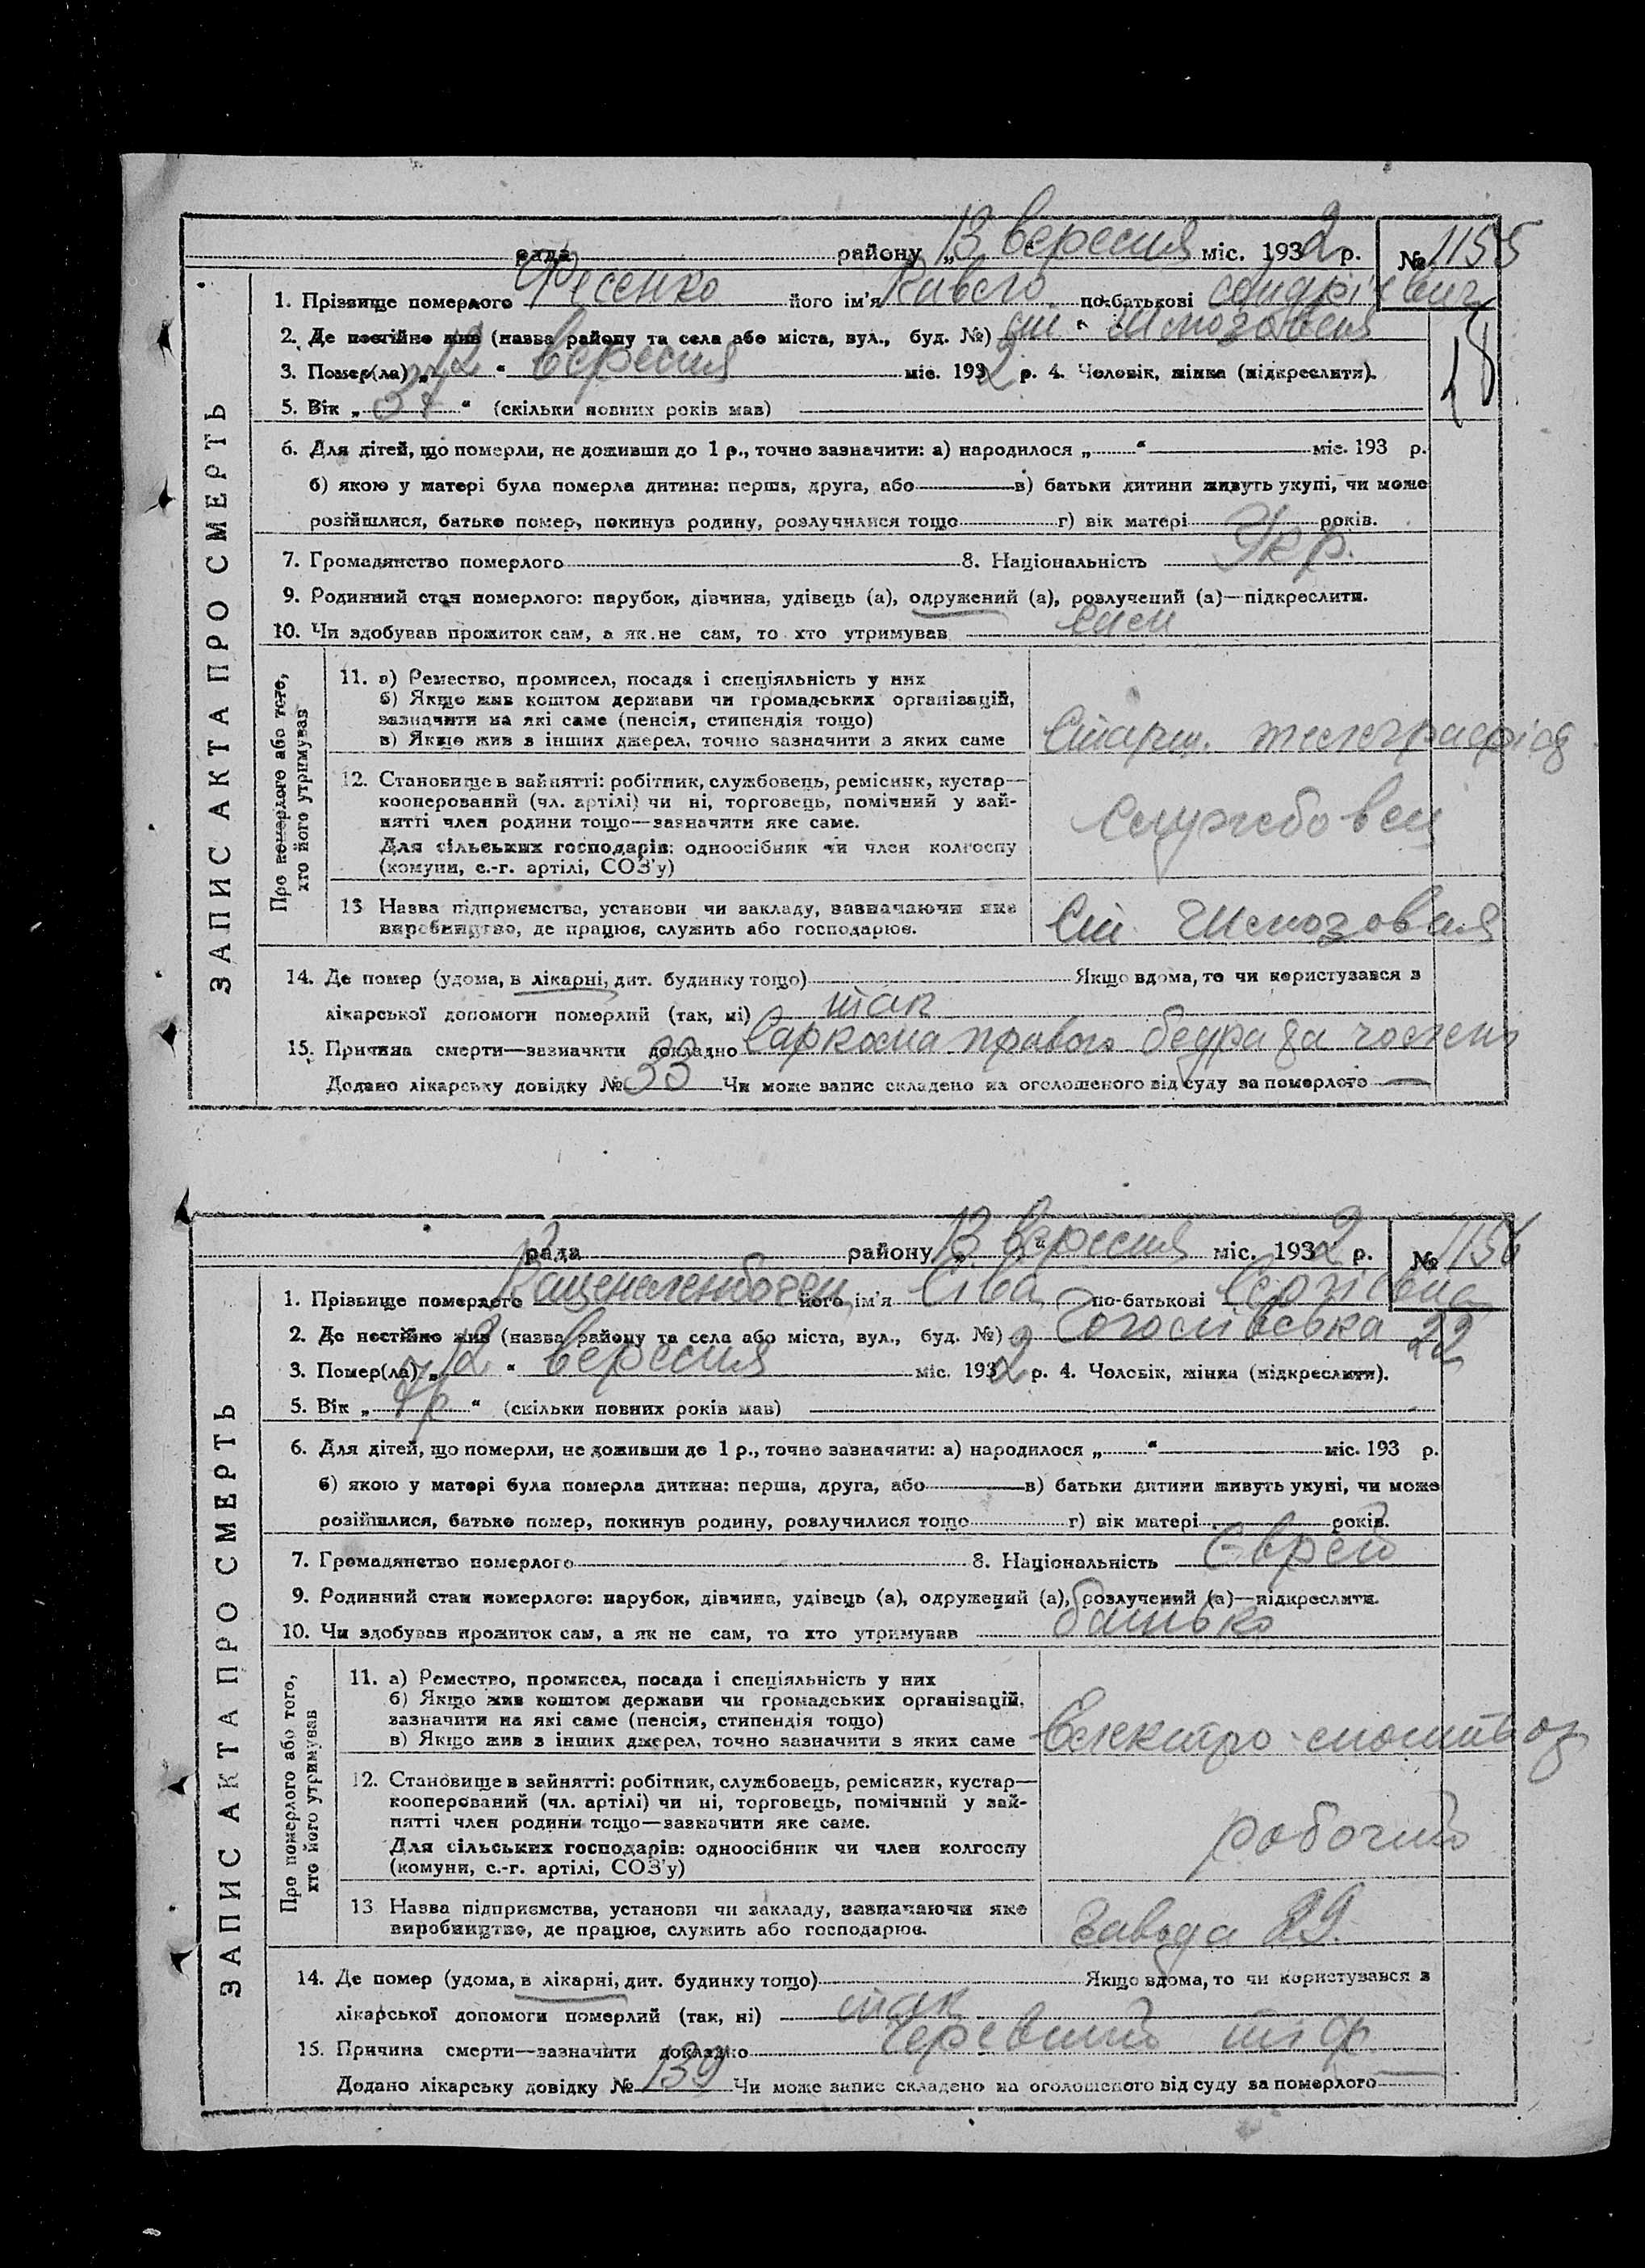 рада району „13 вересня міс. 1932 р. № 1155
1. Прізвище померлого Фесенко його ім'я Павло по-батькові
2. Де постійно жив (назва району та села або міста, вул., буд. №) ст.
3. Помер(ла) „12“ вересня міс. 1932 р. 4. Чоловік, жінка (підкреслити).
18
5. Вік „37“ (скільки повних років мав)
6. Для дітей, що померли, не доживши до 1 р., точно зазначити: а) народилося „ “ міс. 193 р.
б) якою у матері була померла дитина: перша, друга, або в) батьки дитини живуть укупі, чи може
розійшлися, батько помер, покинув родину, розлучилися тощо г) вік матері років.
7. Громадянство померлого 8. Національність Укр.
9. Родинний стан померлого: парубок, дівчина, удівець (а), одружений (а), розлучений (а)—підкреслити.
10. Чи здобував прожиток сам, а як не сам, то хто утримував сам
ЗАПИС АКТА ПРО СМЕРТЬ
Про померлого або того,
хто його утримував
11. а) Ремество, промисел, посада і спеціяльність у них
б) Якщо жив коштом держави чи громадських організацій,
зазначити на які саме (пенсія, стипендія тощо)
в) Якщо жив з інших джерел, точно зазначити з яких саме
Старш. телеграфіст
12. Становище в зайнятті: робітник, службовець, ремісник, кустар—
кооперований (чл. артілі) чи ні, торговець, помічний у зай-
нятті член родини тощо—зазначити яке саме.
Для сільських господарів: одноосібник чи член колгоспу
(комуни, с.-г. артілі, СОЗ'у)
службовец
13 Назва підприємства, установи чи закладу, зазначаючи яке
виробництво, де працює, служить або господарює.
Ст.
14. Де помер (удома, в лікарні, дит. будинку тощо) Якщо вдома, то чи користувався з
лікарської допомоги померлий (так, ні) так
15. Причина смерти—зазначити докладно Саркома правого бедра
Додано лікарську довідку № 33 Чи може запис складено на оголошеного від суду за померлого —
рада району „13“ вересня міс. 1932 р. № 1156
1. Прізвище померлого Каценеленбоген його ім'я по-батькові
2. Де постійно жив (назва району та села або міста, вул., буд. №) Гоголівська 22
3. Помер(ла) „12“ вересня міс. 1932 р. 4. Чоловік, жінка (підкреслити).
5. Вік „7р“ (скільки повних років мав)
6. Для дітей, що померли, не доживши до 1 р., точно зазначити: а) народилося „ “ міс. 193 р.
б) якою у матері була померла дитина: перша, друга, або в) батьки дитини живуть укупі, чи може
розійшлися, батько помер, покинув родину, розлучилися тощо г) вік матері років.
7. Громадянство померлого 8. Національність Єврей
9. Родинний стан померлого: парубок, дівчина, удівець (а), одружений (а), розлучений (а)—підкреслити.
10. Чи здобував прожиток сам, а як не сам, то хто утримував батько
ЗАПИС АКТА ПРО СМЕРТЬ
Про померлого або того,
хто його утримував
11. а) Ремество, промисел, посада і спеціяльність у них
б) Якщо жив коштом держави чи громадських організацій,
зазначити на які саме (пенсія, стипендія тощо)
в) Якщо жив з інших джерел, точно зазначити з яких саме
12. Становище в зайнятті: робітник, службовець, ремісник, кустар—
кооперований (чл. артілі) чи ні, торговець, помічний у зай-
нятті член родини тощо—зазначити яке саме.
Для сільських господарів: одноосібник чи член колгоспу
(комуни, с.-г. артілі, СОЗ'у)
робочий
13 Назва підприємства, установи чи закладу, зазначаючи яке
виробництво, де працює, служить або господарює.
завода 29.
14. Де помер (удома, в лікарні, дит. будинку тощо) Якщо вдома, то чи користувався з
лікарської допомоги померлий (так, ні) так
15. Причина смерти—зазначити докладно Черевний тиф
Додано лікарську довідку № 139 Чи може запис складено на оголошеного від суду за померлого —